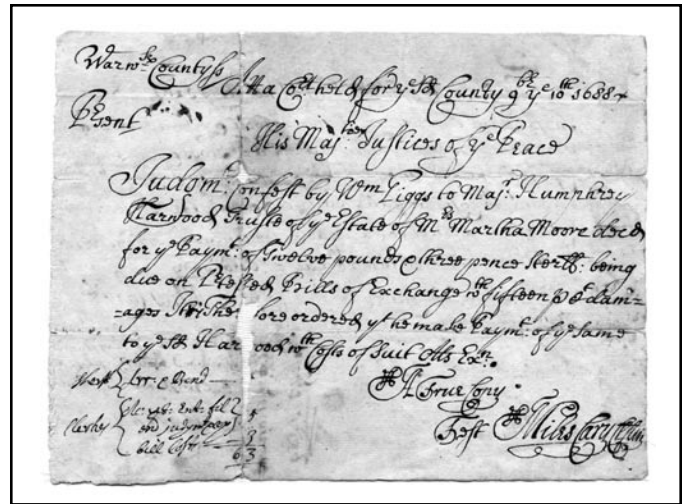 Warw:ck County ss
Att a Cort held for ye sd County 9br ye 10th 1688
Prsent
His Majties Justices of ye Peace
Judgmt: Confest by Wm Piggs to Majr: Humphrey
Harwood Truste of ye Estate of Mrs Martha Moore decd
for ye Paymt: of Twelve pounds & three pence Sterll: being
due on Protested Bills of Exchange wth fifteen p Ct dam=
=ages Therefore ordered yt he make Paymt: of ye same
to ye sd Harwood wth Costs of Suit als Exn:
A True Copy
Test Miles Cary
arr: & Bond
Clerkes
ent: fil
ord judgmt
bill Costs
6 3